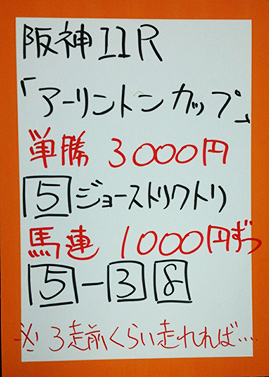 阪神11R
「アーリントンカップ」
単勝 3000円
5 ジョーストリクトリ
馬連 1000円ずつ
5-3 8
※3走前くらい走れれば…